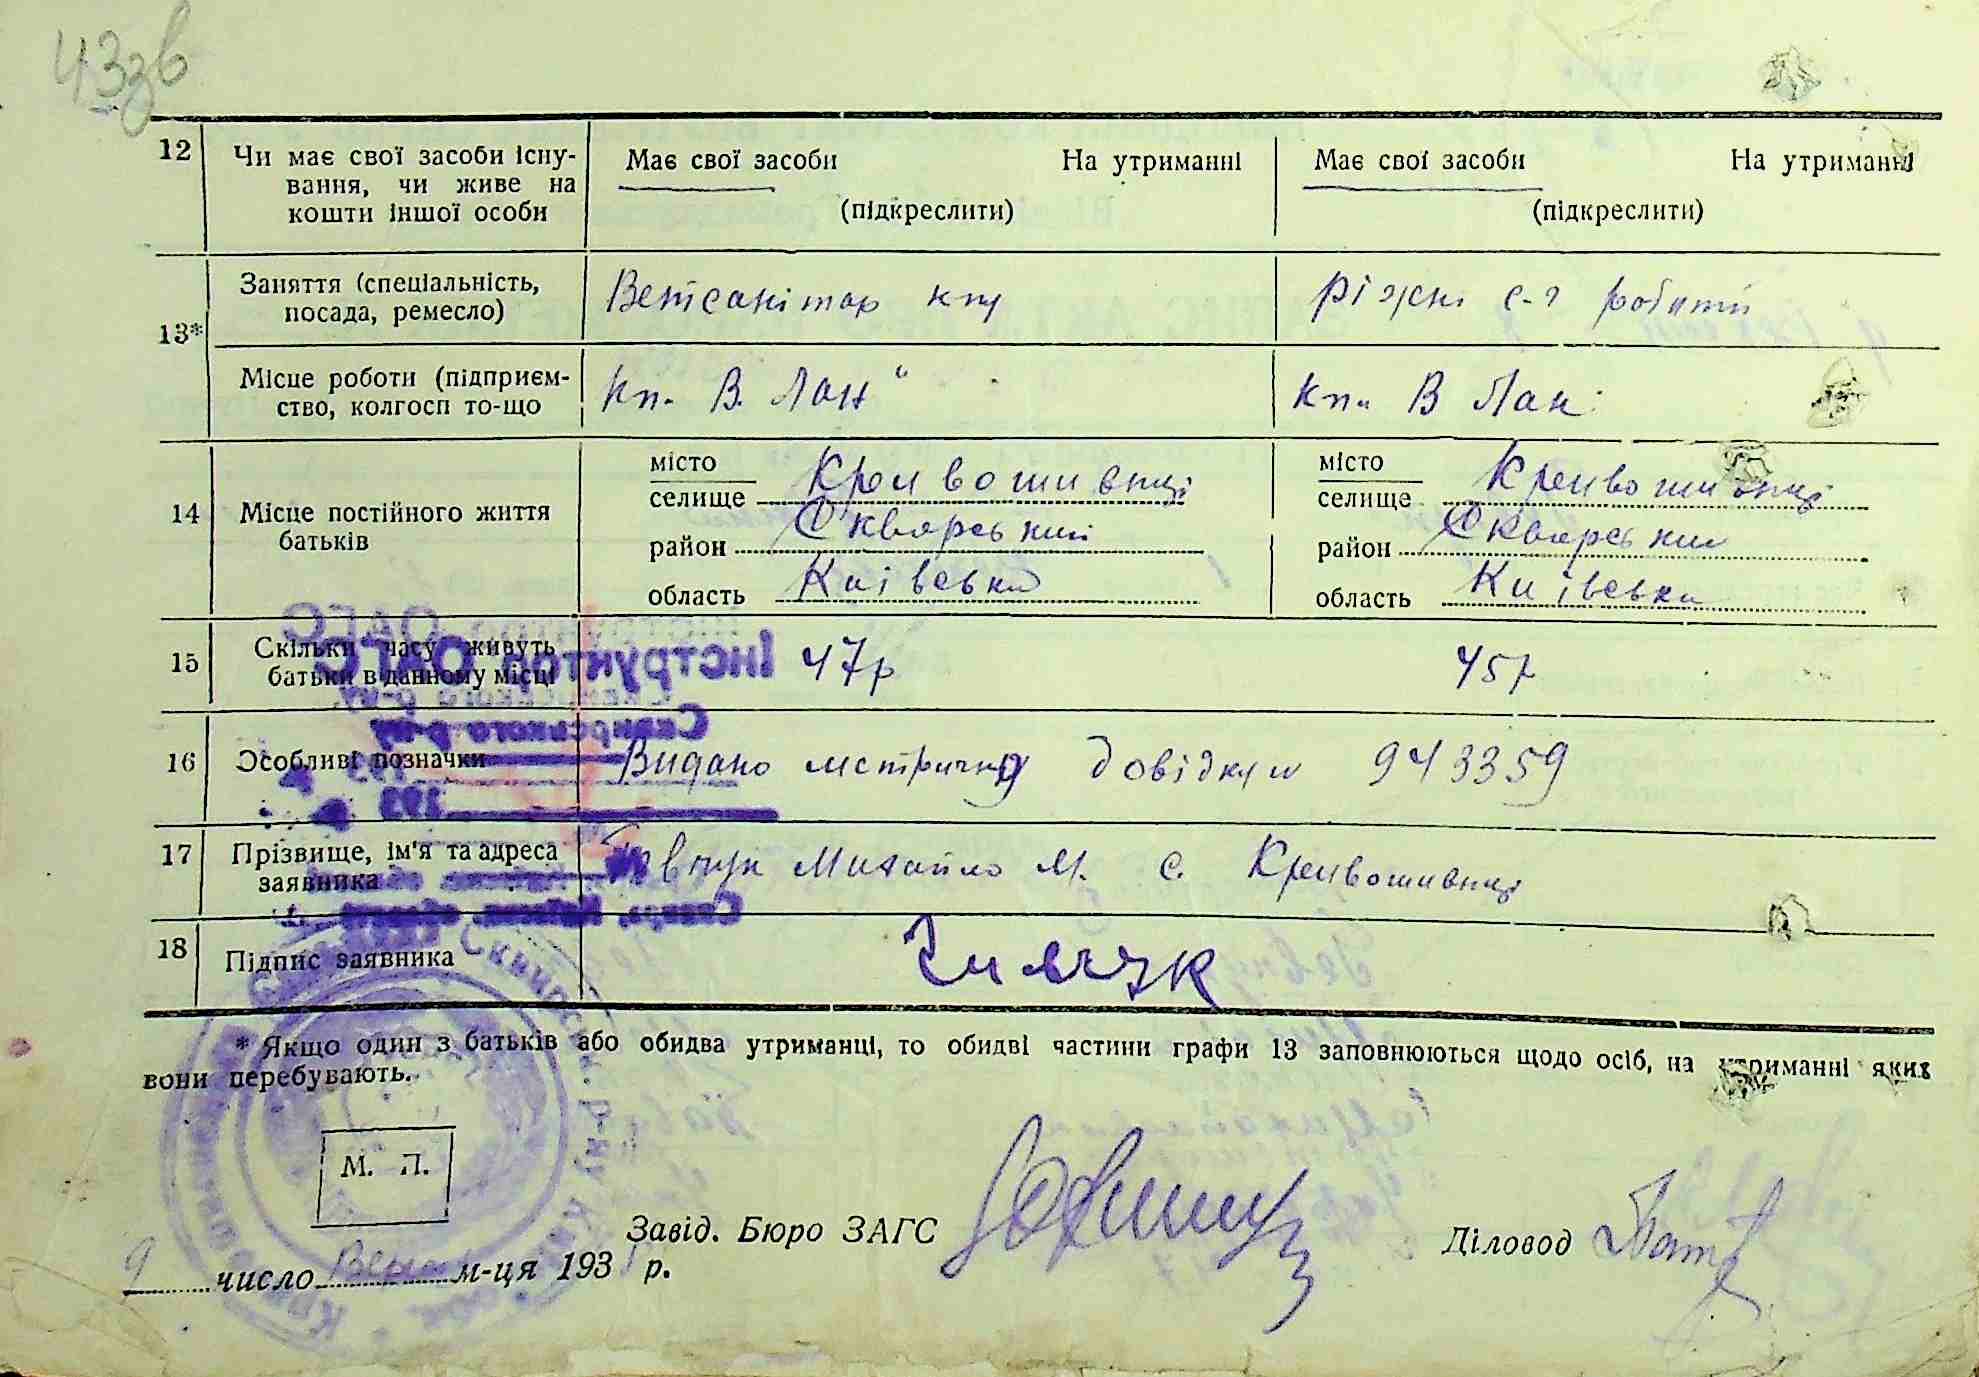 43зв
12 Чи має свої засоби існу- Має свої засоби На утриманні Має свої засоби На утриманні
вання, чи живе на
кошти іншої особи (підкреслити) (підкреслити)
13* Заняття (спеціальність, Ветсанітар кпу ріжні с-г роботи
посада, ремесло)
Місце роботи (підприєм- кп. В. Лан" кп. В Лан
ство, колгосп то-що
14 Місце постійного життя місто місто
батьків селище Кривошиєнці селище Кривошиєнці
район Сквирський район Сквирський
область Київська область Київська
15 Скільки часу живуть 47р 45р
батьки в данному місці
Інструктор ОАГС
Сквирського р-ну
193
16 Особливі позначки Видано метричну довідку 943359
17 Прізвище, ім'я та адреса Михайло М. с. Кривошиєнці
заявника
18 Підпис заявника
* Якщо один з батьків або обидва утриманці, то обидві частини графи 13 заповнюються щодо осіб, на утриманні яких
вони перебувають.
М. П.
Завід. Бюро ЗАГС Діловод
9 число м-ця 193 р.